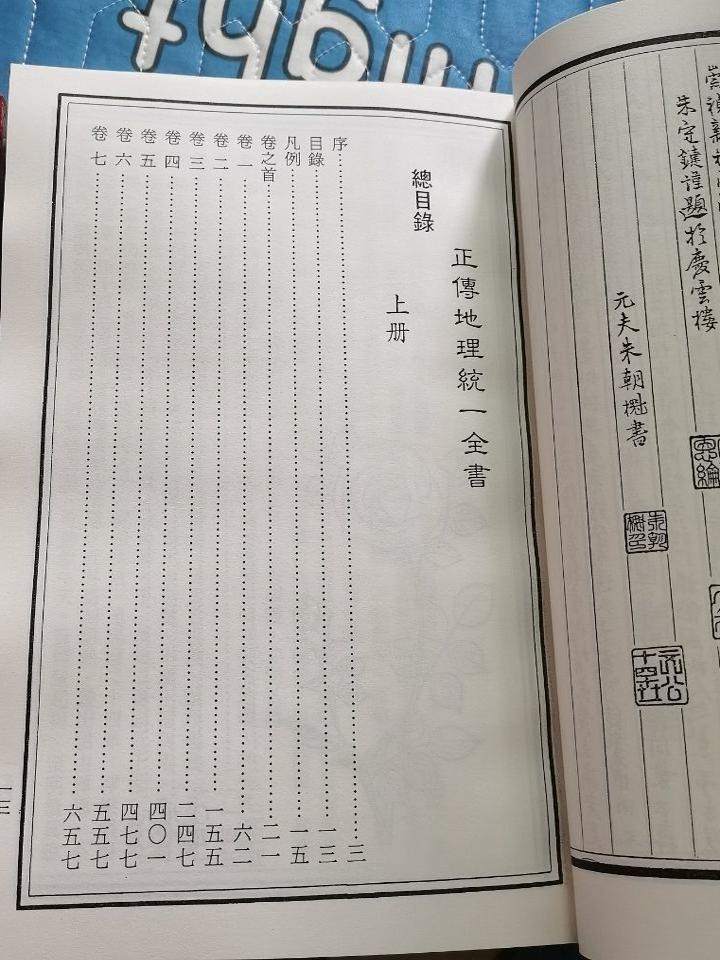 朱守鍵謹題於慶雲樓
元夫朱朝書
正傳地理統一全書
總目錄
上册
序……三
目錄……一三
凡例……一五
卷之首……二一
卷一……六二
卷二……一五五
卷三……二四七
卷四……四〇一
卷五……四七七
卷六……五五七
卷七……六五七